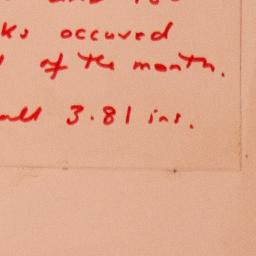 ks occured
of the month.
all 3.81 ins.